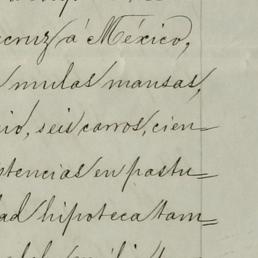 cruz á México,
mulas mansas,
io, seis carros, cien-
tencias en pastu-
ad hipoteca tam-